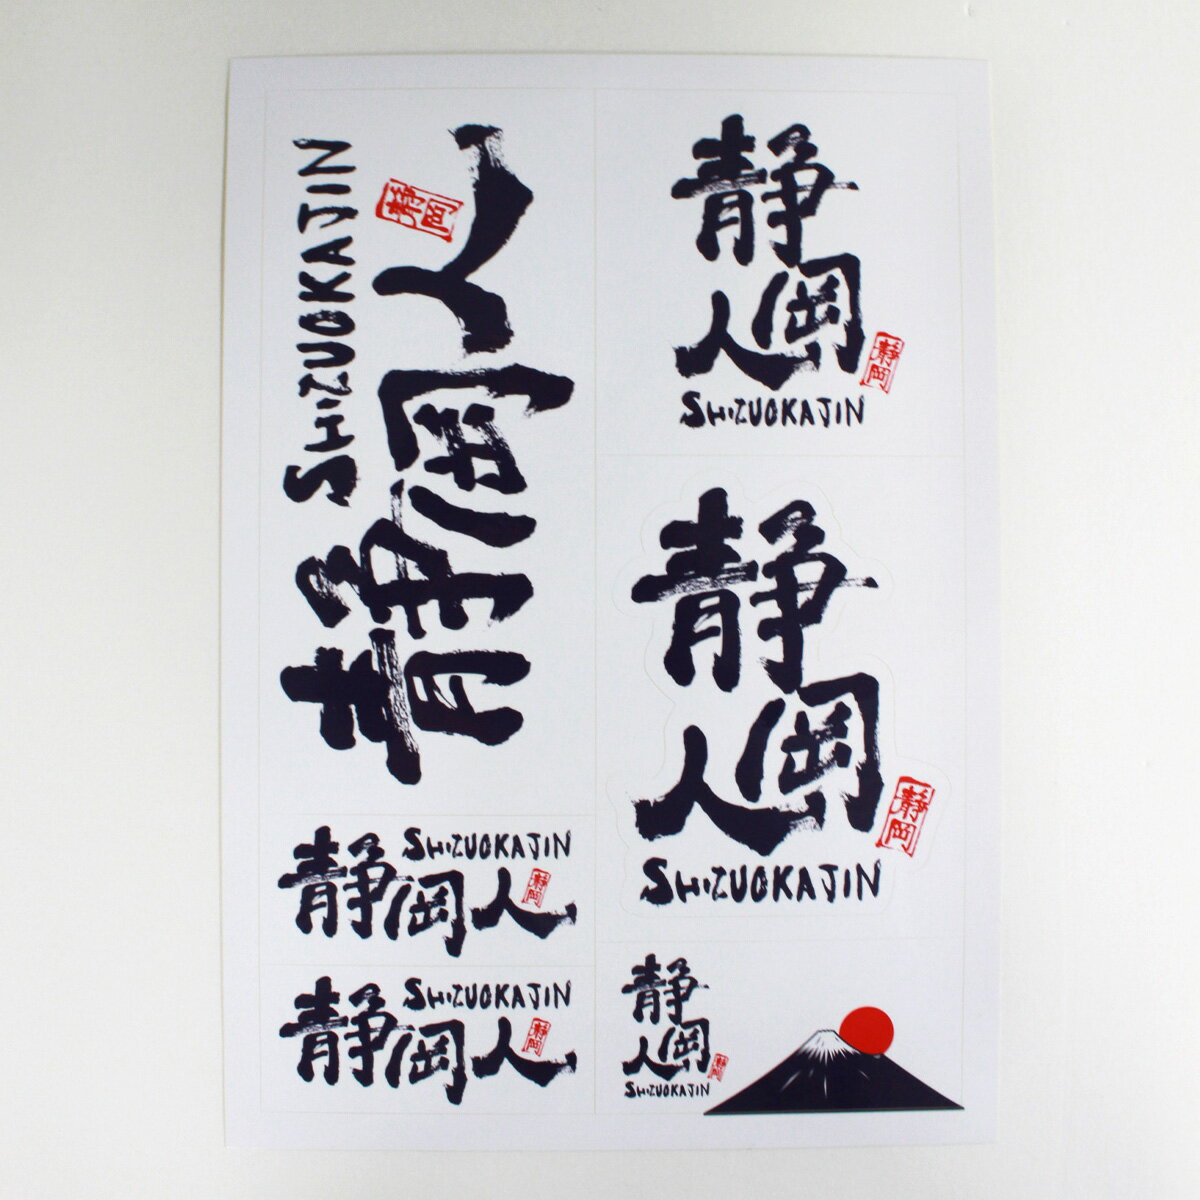 静岡人
SHIZUOKAJIN
静岡
静岡人
SHIZUOKAJIN
静岡
静岡人
SHIZUOKAJIN
静岡
静岡人
SHIZUOKAJIN
静岡
静岡人
SHIZUOKAJIN
静岡
静岡人
SHIZUOKAJIN
静岡